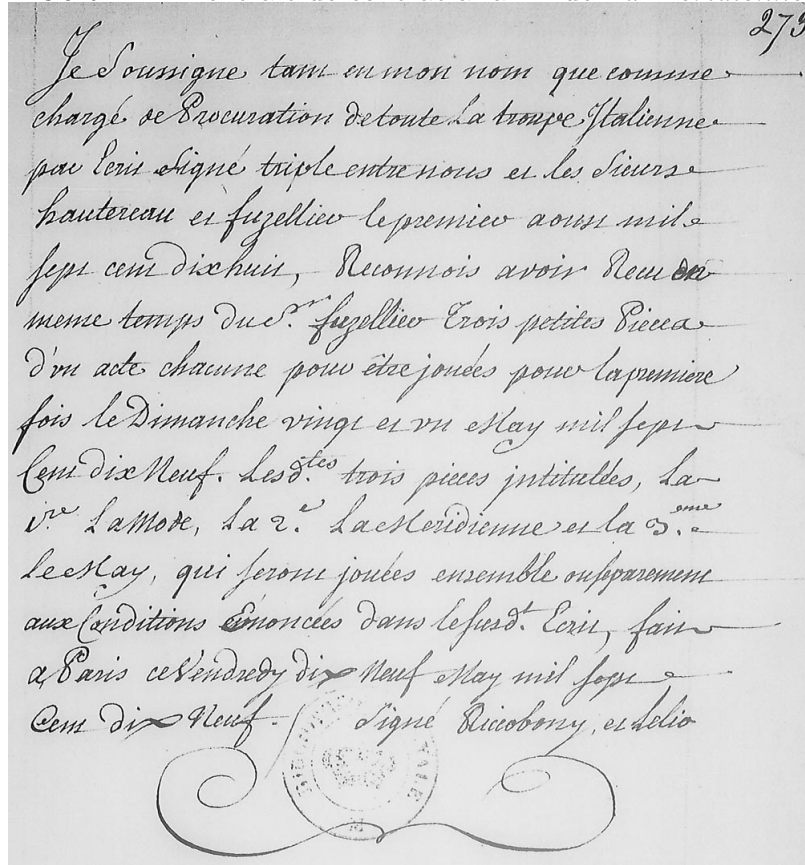 273
Je Soussigne tant en mon nom que comme
chargé de Procuration de toute La troupe Italienne
par Ecrit signé triple entre nous et les Sieurs
hautereau et fuzellier le premier aoust mil
sept cent dix huit, Reconnois avoir Receu en
meme temps du Sr. fuzellier Trois petites Pieces
d'un acte chacune pour être jouées pour la premiere
fois le Dimanche vingt et un May mil sept
Cent dix Neuf. Lesd.tes trois pieces intitulées, La
1.re La Mode, La 2.e La Meridienne et la 3.eme
Le May, qui seront jouées ensemble ou separement
aux Conditions Enoncées dans le susd.t Ecrit, fait
a Paris ce Vendredy dix Neuf May mil sept
Cent dix Neuf. Signé Riccobony, et Lelio